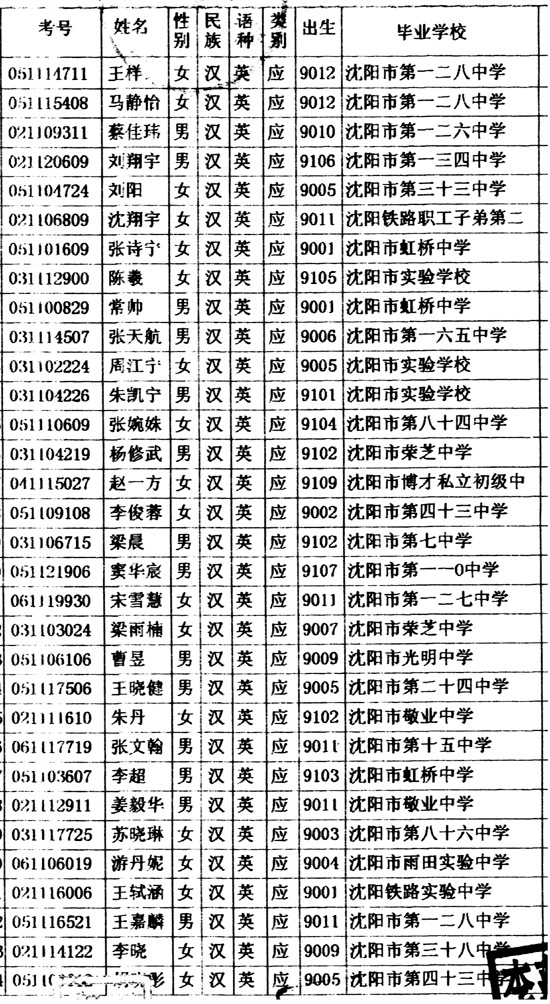 考号 姓名 性别 民族 语种 类别 出生 毕业学校
051114711 王样 女 汉 英 应 9012 沈阳市第一二八中学
051115408 马静怡 女 汉 英 应 9012 沈阳市第一二八中学
021109311 蔡佳玮 男 汉 英 应 9010 沈阳市第一二六中学
021120609 刘翔宇 男 汉 英 应 9106 沈阳市第一三四中学
051104724 刘阳 女 汉 英 应 9005 沈阳市第三十三中学
021106809 沈翔宇 女 汉 英 应 9011 沈阳铁路职工子弟第二
051101609 张诗宁 女 汉 英 应 9001 沈阳市虹桥中学
031112900 陈羲 女 汉 英 应 9105 沈阳市实验学校
051100829 常帅 男 汉 英 应 9001 沈阳市虹桥中学
031114507 张天航 男 汉 英 应 9006 沈阳市第一六五中学
031102224 周江宁 女 汉 英 应 9005 沈阳市实验学校
031104226 朱凯宁 男 汉 英 应 9101 沈阳市实验学校
051110609 张婉姝 女 汉 英 应 9104 沈阳市第八十四中学
031104219 杨修武 男 汉 英 应 9102 沈阳市荣芝中学
041115027 赵一方 女 汉 英 应 9109 沈阳市博才私立初级中
051109108 李俊蓉 女 汉 英 应 9002 沈阳市第四十三中学
031106715 梁晨 男 汉 英 应 9102 沈阳市第七中学
051121906 窦华宸 男 汉 英 应 9107 沈阳市第一一0中学
061119930 宋雪慧 女 汉 英 应 9011 沈阳市第一二七中学
031103024 梁雨楠 女 汉 英 应 9007 沈阳市荣芝中学
051106106 曹昱 男 汉 英 应 9009 沈阳市光明中学
051117506 王晓健 男 汉 英 应 9005 沈阳市第二十四中学
021111610 朱丹 女 汉 英 应 9102 沈阳市敬业中学
061117719 张文翰 男 汉 英 应 9011 沈阳市第十五中学
051103607 李超 男 汉 英 应 9103 沈阳市虹桥中学
021112911 姜毅华 男 汉 英 应 9011 沈阳市敬业中学
031117725 苏晓琳 女 汉 英 应 9003 沈阳市第八十六中学
061106019 游丹妮 女 汉 英 应 9004 沈阳市雨田实验中学
021116006 王轼涵 女 汉 英 应 9001 沈阳铁路实验中学
051116521 王嘉麟 男 汉 英 应 9011 沈阳市第一二八中学
021114122 李晓 女 汉 英 应 9009 沈阳市第三十八中学
彤 女 汉 英 应 9005 沈阳市第四十三中学